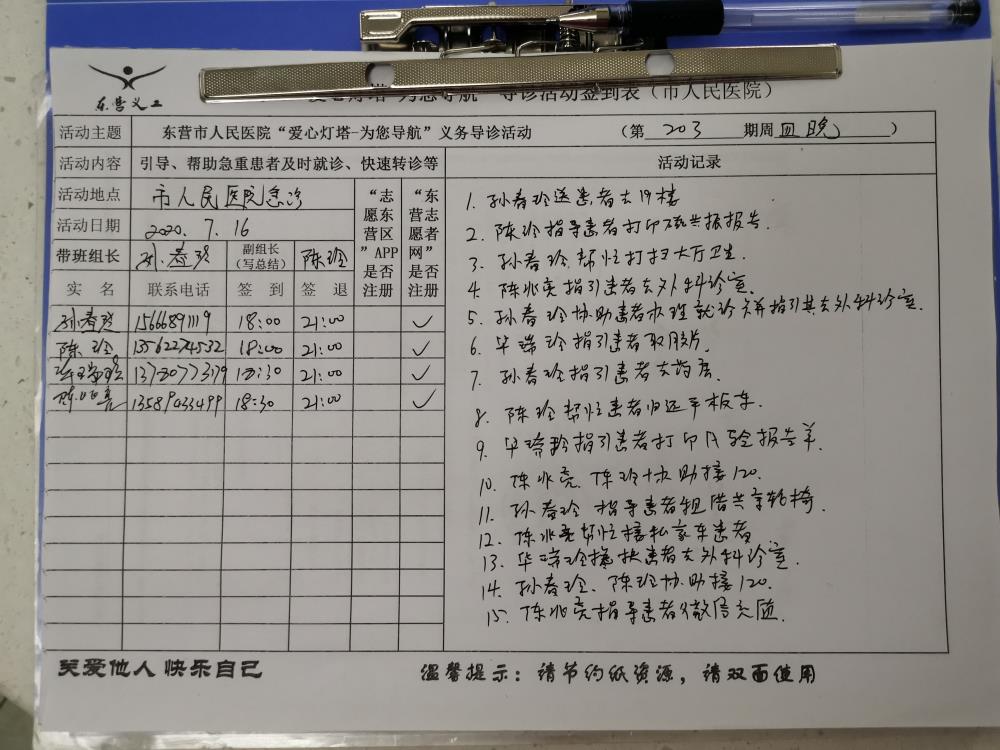 东营义工
导诊活动签到表（市人民医院）
活动主题 东营市人民医院“爱心灯塔-为您导航”义务导诊活动 （第 203 期周四晚 ）
活动内容 引导、帮助急重患者及时就诊、快速转诊等 活动记录
活动地点 市人民医院急诊
活动日期 2020. 7. 16
带班组长 孙春玲 副组长（写总结） 陈玲
“志愿东营区”APP是否注册
“东营志愿者网”是否注册
实 名 联系电话 签 到 签 退
孙春玲 15666891119 18:00 21:00 ✓
陈玲 13562274532 18:00 21:00 ✓
华瑞玲 13780773179 18:30 21:00 ✓
陈兆亮 13589433499 18:30 21:00 ✓
1. 孙春玲送患者去19楼
2. 陈玲指导患者打印磁共振报告.
3. 孙春玲帮忙打扫大厅卫生.
4. 陈兆亮指引患者去外科诊室.
5. 孙春玲协助患者办理就诊并指引其去外科诊室.
6. 华瑞玲指引患者取胶片.
7. 孙春玲指引患者去药房.
8. 陈玲帮忙患者归还平板车.
9. 华瑞玲指引患者打印化验报告单.
10. 陈兆亮、陈玲协助接120.
11. 孙春玲指导患者租借共享轮椅.
12. 陈兆亮帮忙接私家车患者
13. 华瑞玲搀扶患者去外科诊室.
14. 孙春玲、陈玲协助接120.
15. 陈兆亮指导患者微信充值.
关爱他人 快乐自己 温馨提示：请节约纸资源，请双面使用